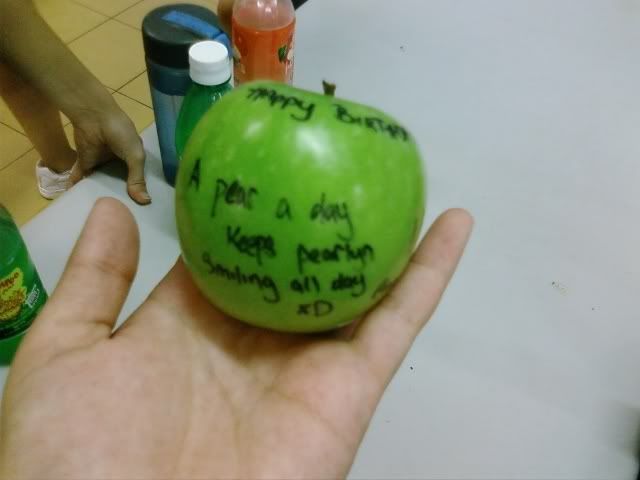 Happy Birthday
A pear a day
Keeps pearlyn
Smiling all day
xD